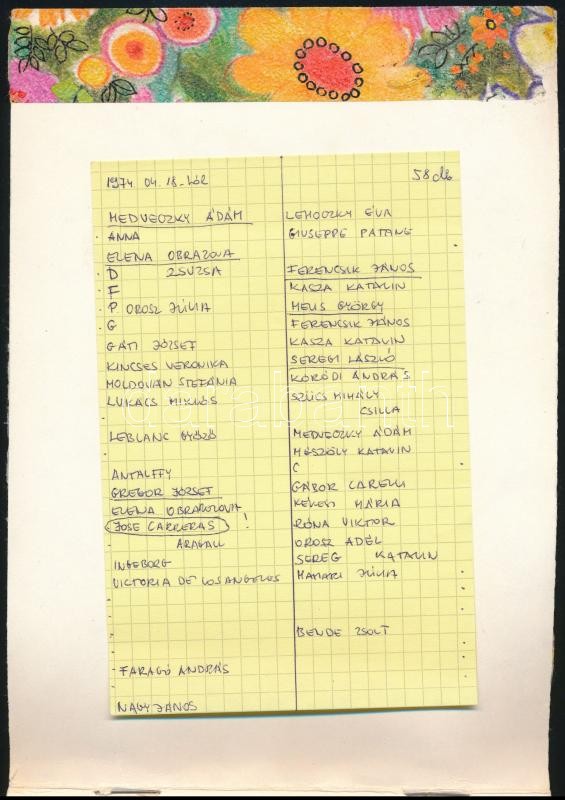 1974. 04. 18.-tól
58 db
MEDVECZKY ÁDÁM
ANNA
ELENA OBRAZOVA
D ZSUZSA
F
P OROSZ JÚLIA
G
GÁTI JÓZSEF
KINCSES VERONIKA
MOLDOVÁN STEFÁNIA
LUKÁCS MIKLÓS
LEBLANC GYŐZŐ
ANTALFFY
GREGOR JÓZSEF
ELENA OBRAZOVA
JOSE CARRERAS !
ARAGALL
INGEBORG
VICTORIA DE LOS ANGELES
FARAGÓ ANDRÁS
NAGY JÁNOS
LEHOCZKY ÉVA
GIUSEPPE PATANE
FERENCSIK JÁNOS
KASZA KATALIN
MELIS GYÖRGY
FERENCSIK JÁNOS
KASZA KATALIN
SEREGI LÁSZLÓ
KÓRÓDI ANDRÁS
SZŰCS MIHÁLY
CSILLA
MEDVECZKY ÁDÁM
MÉSZÖLY KATALIN
C
GÁBOR CARELLI
MÁRIA
RÓNA VIKTOR
OROSZ ADÉL
SEREG KATALIN
JÚLIA
BENDE ZSOLT